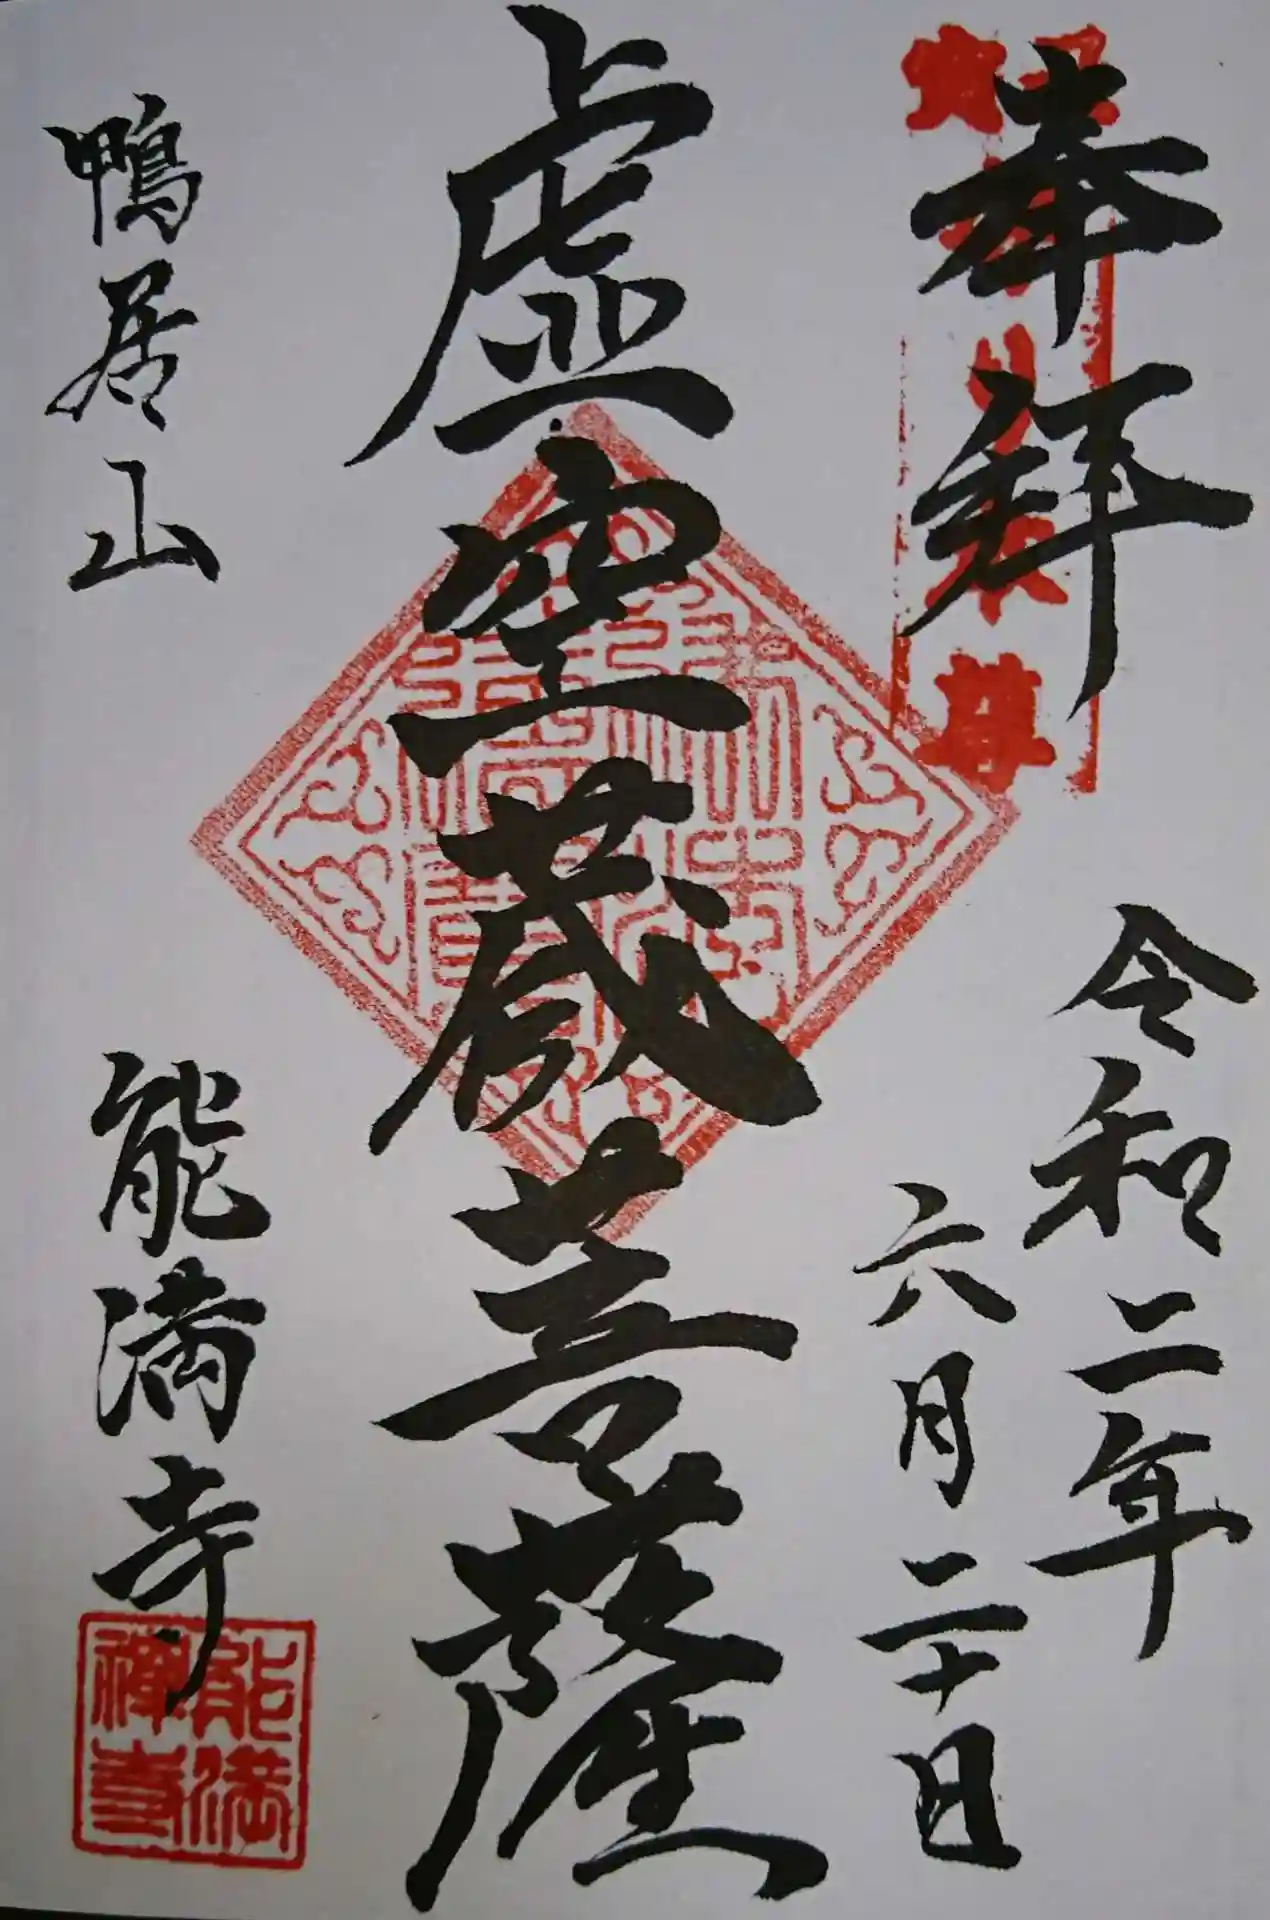 奉拜
令和二年
六月二十日
虚空蔵菩薩
鴨居山
能満寺
能満
禅寺